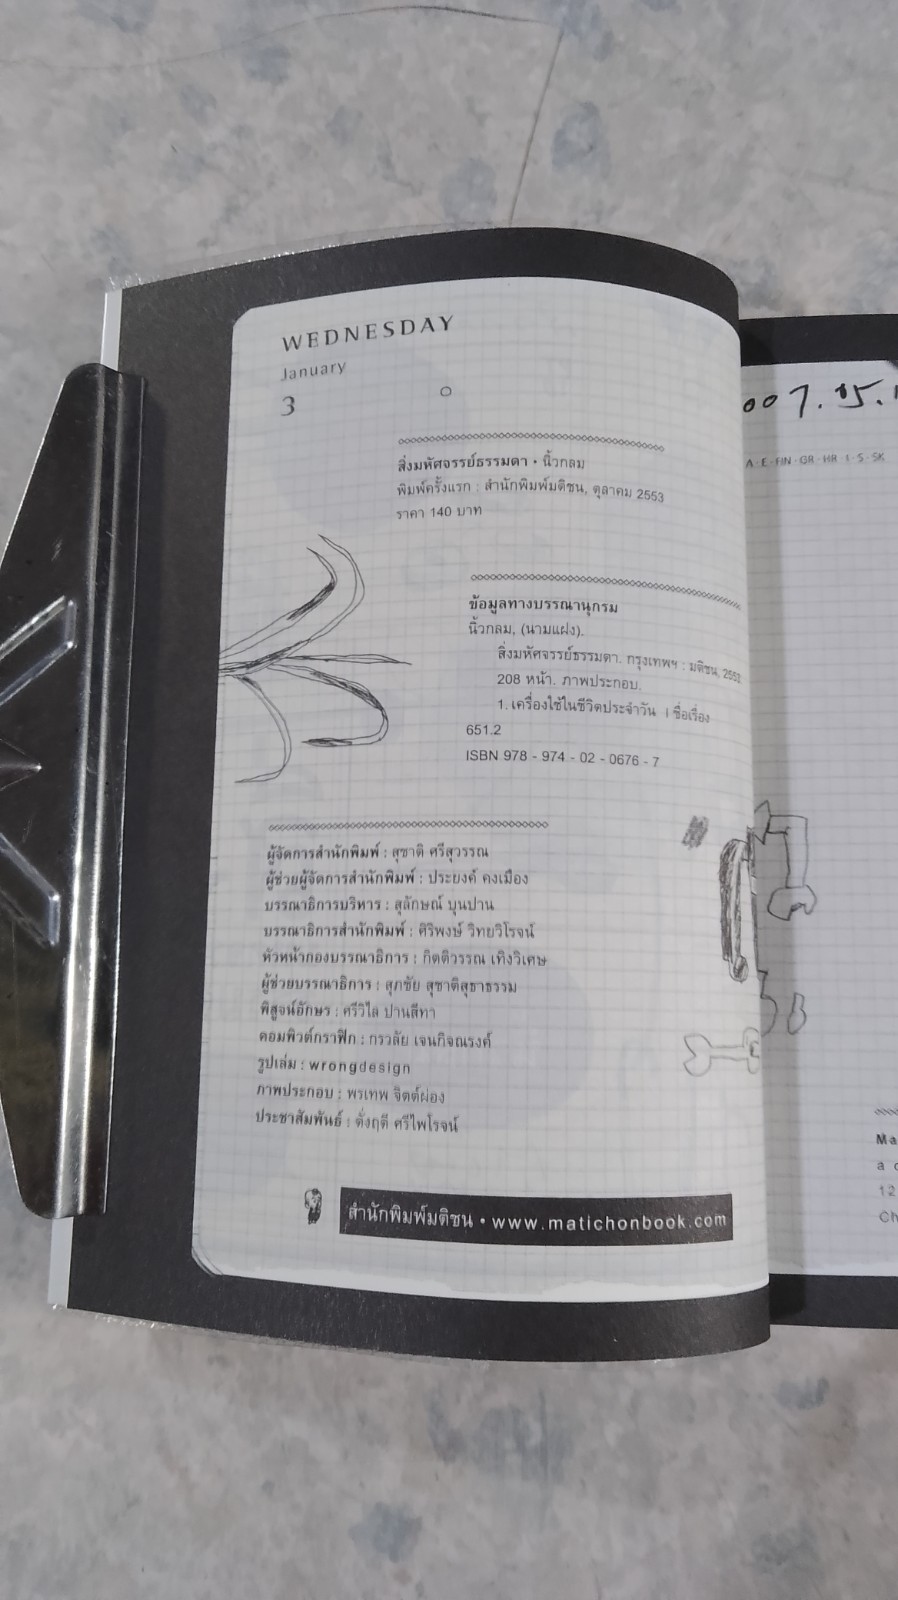 WEDNESDAY
January
3
สิ่งมหัศจรรย์ธรรมดา • นิ้วกลม
พิมพ์ครั้งแรก : สำนักพิมพ์มติชน, ตุลาคม 2553
ราคา 140 บาท
ข้อมูลทางบรรณานุกรม
นิ้วกลม, (นามแฝง).
สิ่งมหัศจรรย์ธรรมดา. กรุงเทพฯ : มติชน, 2553
208 หน้า. ภาพประกอบ.
1. เครื่องใช้ในชีวิตประจำวัน I ชื่อเรื่อง
651.2
ISBN 978 - 974 - 02 - 0676 - 7
ผู้จัดการสำนักพิมพ์ : สุชาติ ศรีสุวรรณ
ผู้ช่วยผู้จัดการสำนักพิมพ์ : ประยงค์ คงเมือง
บรรณาธิการบริหาร : สุลักษณ์ บุนปาน
บรรณาธิการสำนักพิมพ์ : ศิริพงษ์ วิทยวิโรจน์
หัวหน้ากองบรรณาธิการ : กิตติวรรณ เทิงวิเศษ
ผู้ช่วยบรรณาธิการ : สุภชัย สุชาติสุธาธรรม
พิสูจน์อักษร : ศรีวิไล ปานสีทา
คอมพิวต์กราฟิก : กรวลัย เจนกิจณรงค์
รูปเล่ม : wrongdesign
ภาพประกอบ : พรเทพ จิตต์ผ่อง
ประชาสัมพันธ์ : ตั่งฤดี ศรีไพโรจน์
สำนักพิมพ์มติชน • www.matichonbook.com
A · E · FIN · GR · HR · I · S · SK
Ma
a
12
Ch